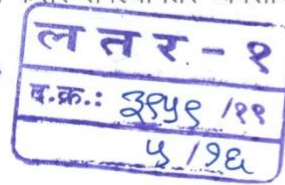 ल त र - १
द.क्र.: ३९५९ /११
५ /१६